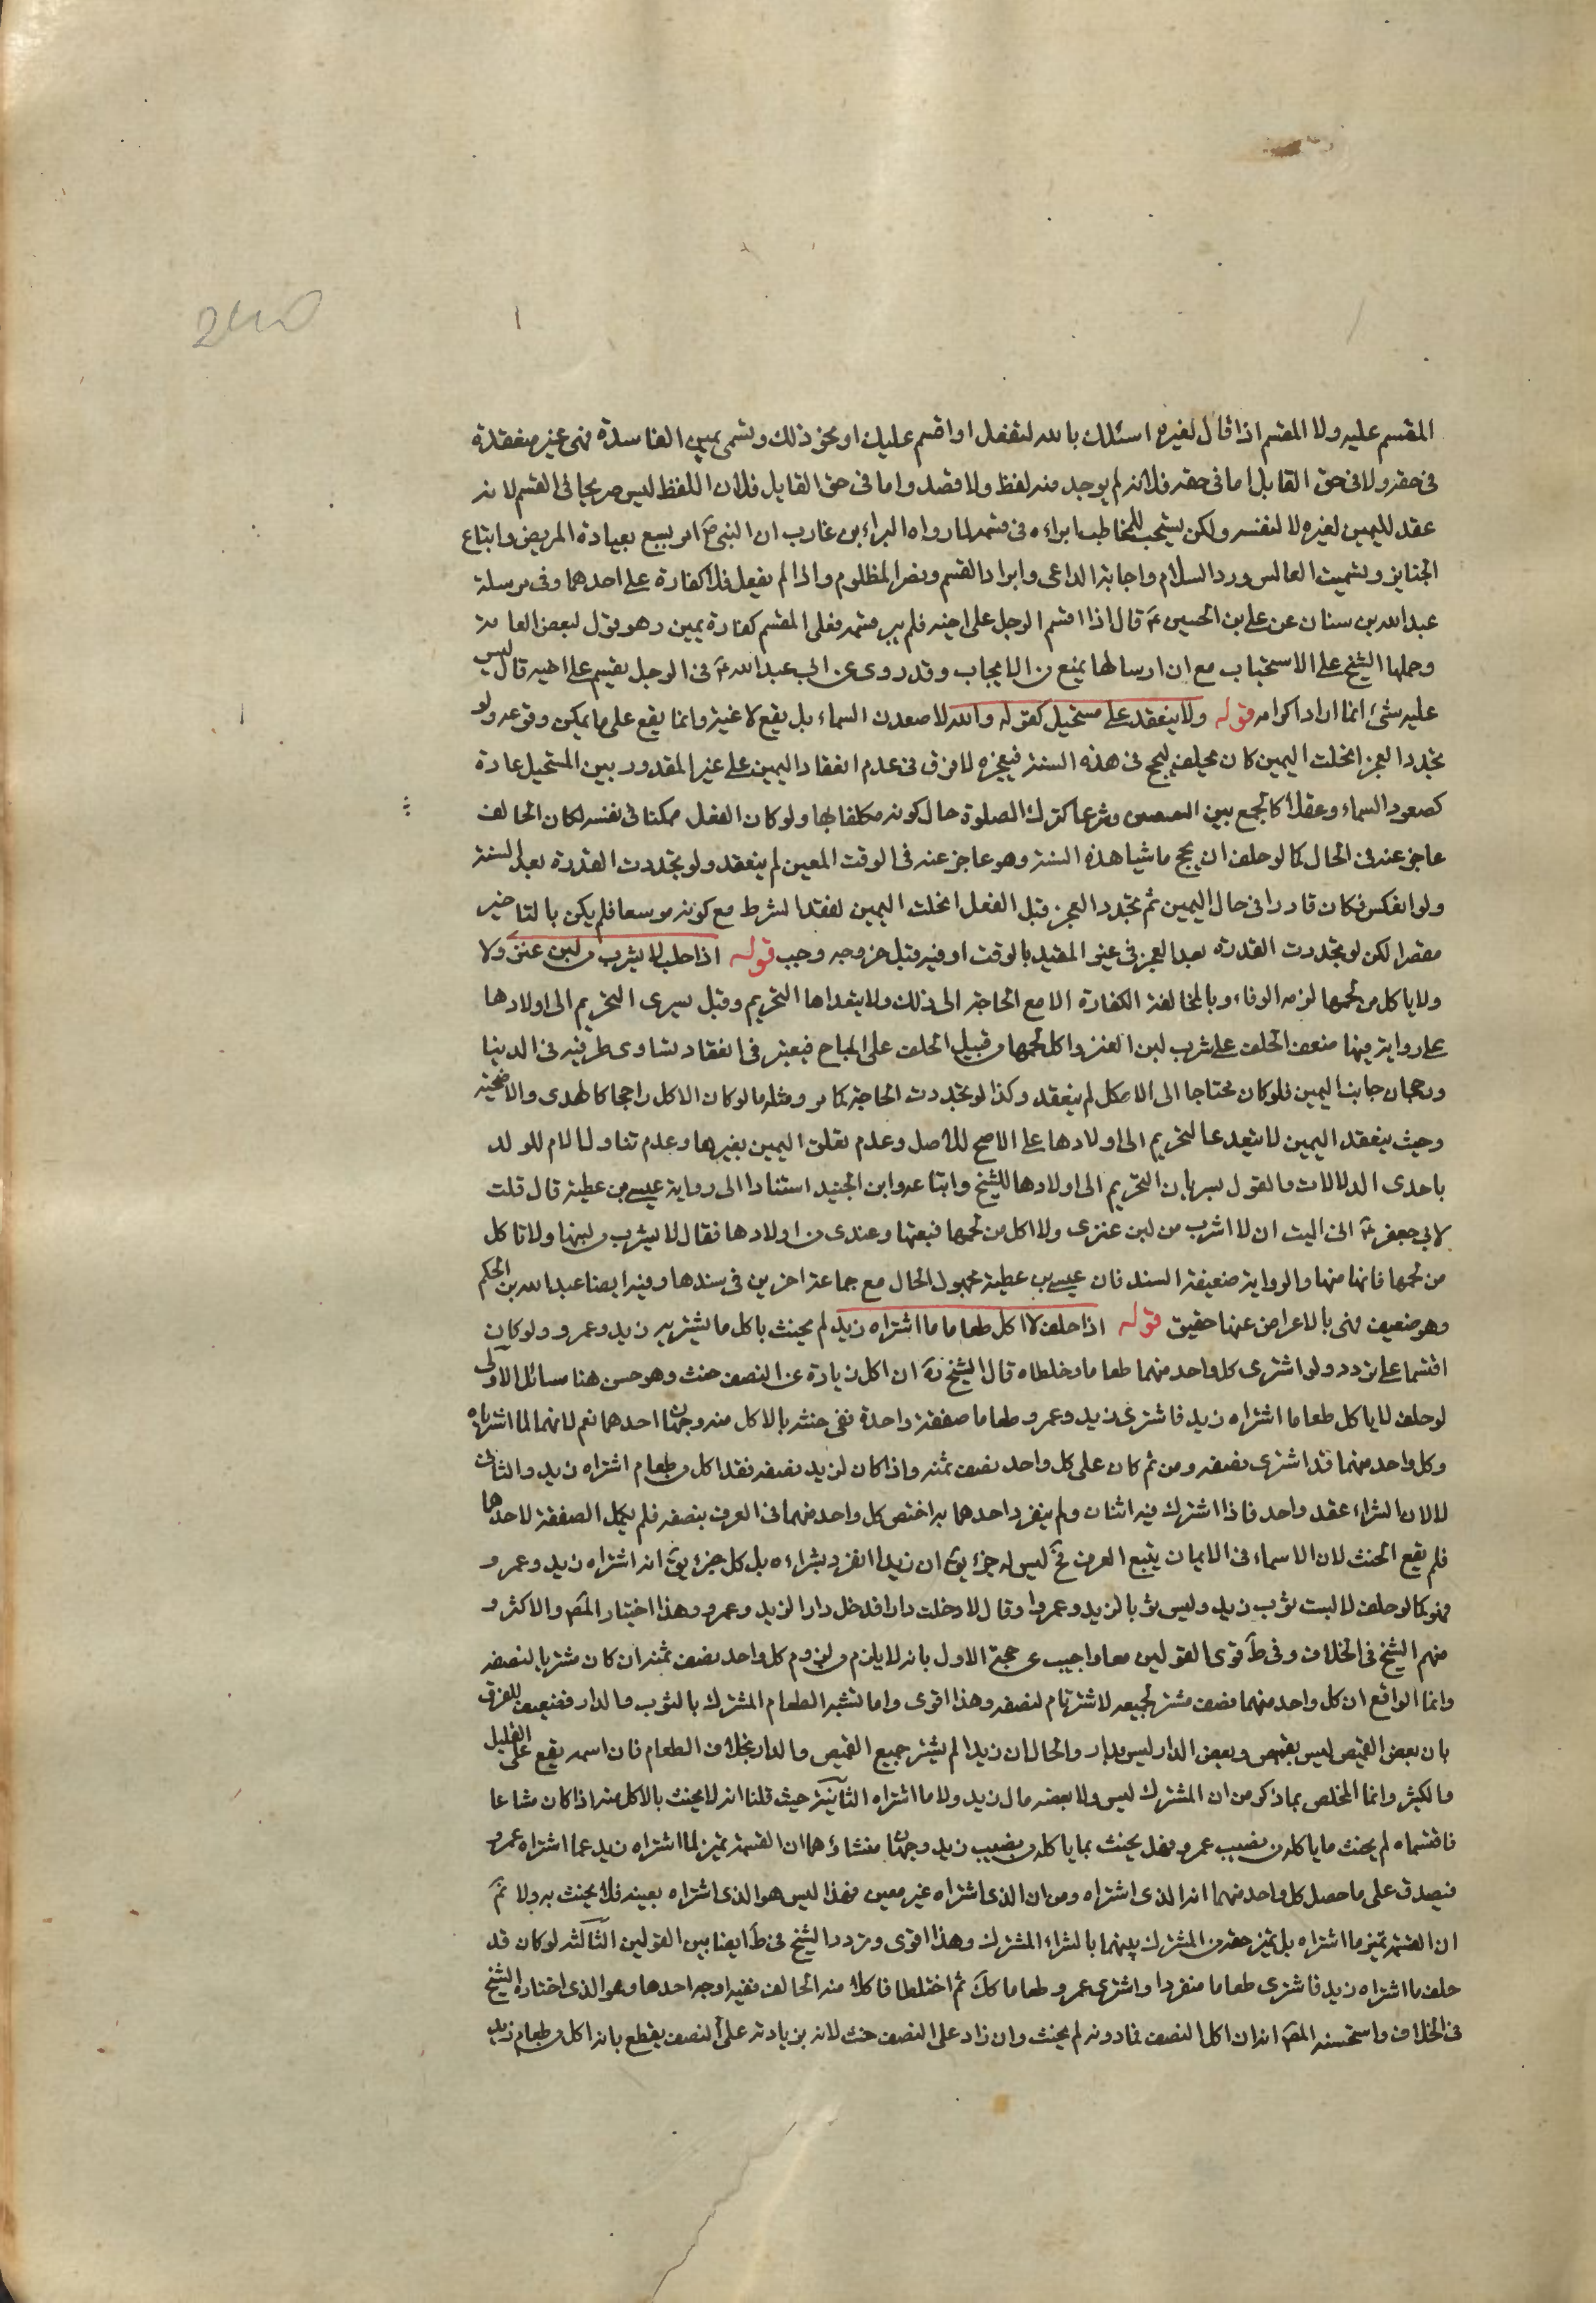 المقسم عليه ولا المقسم اذا قال لغيره اسئلك بالله لتفعل او اقسم عليك او نحو ذلك وتسمى يمين المناشدة فهى غير منعقدة
فى حقه ولا فى حق القايل اما فى حقه فلانه لم يوجد منه لفظ ولا قصد واما فى حق القايل فلان اللفظ ليس صريحا فى القسم لانه
عقد لليمين لغيره لا لنفسه ولكن يستحب للمخاطب ابراءه فى قسمه لما رواه البراء بن عازب ان النبى ص امر بسبع بعيادة المريض واتباع
الجنايز وتشميت العاطس ورد السلام واجابة الداعى وابراد القسم ونصر المظلوم واذا لم يفعل فلا كفارة على احدهما وفى مرسلة
عبدالله بن سنان عن على بن الحسين ع قال اذا اقسم الرجل على اخيه فلم يبر قسمه فعلى المقسم كفارة يمين وهو قول لبعض العامة
وحملها الشيخ على الاستحباب مع ان ارسالها يمنع من الايجاب وقد روى عن ابى عبدالله ع فى الرجل يقسم على اخيه قال ليس
عليه شئ انما اراد اكرامه قوله ولا ينعقد على مستحيل كقوله والله لاصعدن السماء بل يقع لاغية وانما يقع على ما يمكن وقوعه ولو
تجدد العجز انحلت اليمين كان يحلف ليحج فى هذه السنة فيعجز لا فرق فى عدم انعقاد اليمين على غير المقدور بين المستحيل عادة
كصعود السماء وعقلا كالجمع بين وشرعا كترك الصلوة حال كونه مكلفا بها ولو كان الفعل ممكنا فى نفسه لكان الحالف
عاجز عنه فى الحال كما لو حلف ان يحج ماشيا هذه السنة وهو عاجز عنه فى الوقت المعين لم ينعقد ولو تجددت القدرة بعد السنة
ولو انعكس فكان قادرا فى حال اليمين ثم تجدد العجز قبل الفعل انحلت اليمين لفقد الشرط مع كونه موسعا فلم يكن بالتاخير
مقصرا لكن لو تجددت القدرة بعد العجز فى غير المقيد بالوقت او فيه قبل خروجه وجب قوله اذا حلف لا يشرب من لبن عنز ولا
ولا ياكل من لحمها لزمه الوفاء وبالمخالفة الكفارة الا مع الحاجة الى ذلك ولا يتعداها التحريم وقيل يسرى التحريم الى اولادها
على رواية فيها ضعف الحلف على شرب لبن العنز واكل لحمها من قبيل الحلف على المباح فيعتبر فى انعقاد تساوى طرفيه فى الدنيا
ورجحان جانب اليمين فلو كان محتاجا الى الاكل لم ينعقد وكذا لو تجددت الحاجة كما مر ومثله ما لو كان الاكل راجحا كالهدى والاضحية
وحيث ينعقد اليمين لا يتعد عا التحريم الى اولادها على الاصح للاصل وعدم تعلق اليمين بغيرها وعدم تناول الام للولد
باحدى الدلالات والقول بسريان التحريم الى اولادها للشيخ واتباعه وابن الجنيد استنادا الى رواية عيسى بن عطية قال قلت
لابى جعفر ع انى اليت ان لا اشرب من لبن عنزى ولا اكل من لحمها فبعتها وعندى من اولادها فقال لا يشرب من لبنها ولا تاكل
من لحمها فانها منها والرواية ضعيفة السند فان عيسى بن عطية مجهول الحال مع جماعة اخرين فى سندها وفيه ايضا عبدالله بن الحكم
وهو ضعيف فهى بالاعراض عنها حقيق قوله اذا حلف لا اكل طعاما ما اشتراه زيد لم يحنث باكل ما يشتريه زيد وعمرو ولو كان
اقتسما على تردد ولو اشترى كل واحد منهما طعاما وخلطاه قال الشيخ ره ان اكل زيادة عن النصف حنث وهو حسن هنا مسائل الاولى
لو حلف لا ياكل طعاما اشتراه زيد فاشترى زيد وعمرو طعاما صفقة واحدة ففى حنثه بالاكل منه وجهان احدهما نعم لانهما لما اشترياه
وكل واحد منهما قد اشترى نصفه ومن ثم كان على كل واحد نصف ثمنه واذا كان لزيد نصفه فقد اكل من طعام اشتراه زيد والثانى
لا لان الشراء عقد واحد فاذا اشترك فيه اثنان ولم ينفرد احدهما به اختص كل واحد منهما فى العرف بنصفه فلم يكمل الصفقة لاحدهما
فلم يقع الحنث لان الاسماء فى الايمان يتبع العرف فح ليس له جزء يق ان زيدا انفرد بشراءه بل كل جزء يق انه اشتراه زيد وعمرو
فهو كما لو حلف لا لبست ثوب زيد وليس ثوبا لزيد وعمرو او قال لا دخلت دارا فدخل دارا لزيد وعمرو وهذا اختيار المص والاكثر و
منهم الشيخ فى الخلاف وفى ط قوى القولين معا واجيب عن حجة الاول بانه لا يلزم من لزوم كل واحد نصف ثمنه ان كان مشتريا لنصفه
وانما الواقع ان كل واحد منهما نصف مشتر لجميعه لا مشتر تام لنصفه وهذا اقوى واما تشبه الطعام المشترك بالثوب والدار فضعيف للفرق
بان بعض القميص ليس بقميص وبعض الدار ليس بدار والحال ان زيدا لم يشتر جميع القميص والدار بخلاف الطعام فان اسمه يقع على القليل
والكثير وانما المخلص بما ذكر من ان المشترك ليس ولا بعضه مال زيد ولا ما اشتراه الثانية حيث قلنا انه لا يحنث بالاكل منه اذا كان مشاعا
فاقتسماه لم يحنث ما ياكله من نصيب عمرو وهل يحنث بما ياكله من نصيب زيد وجهان منشاؤهما ان القسمة تميز لما اشتراه زيد عما اشتراه عمرو
فيصدق على ما حصل كل واحد منهما انه الذى اشتراه ومن ان الذى اشتراه غير معين فهذا ليس هو الذى اشتراه بعينه فلا يحنث به ولا نم
ان القسمة تميز ما اشتراه بل تميز حقه من المشترك بينهما بالشراء المشترك وهذا اقوى وتردد الشيخ فى ط ايضا بين القولين الثالثة لو كان قد
حلف ما اشتراه زيد فاشترى طعاما منفردا واشترى عمرو طعاما كك ثم اختلطا فاكل منه الحالف ففيه اوجه احدها وهو الذى اختاره الشيخ
فى الخلاف واستحسنه المص انه ان اكل النصف فما دونه لم يحنث وان زاد على النصف حنث لانه بزيادته على النصف يقطع بانه اكل من طعام زيد